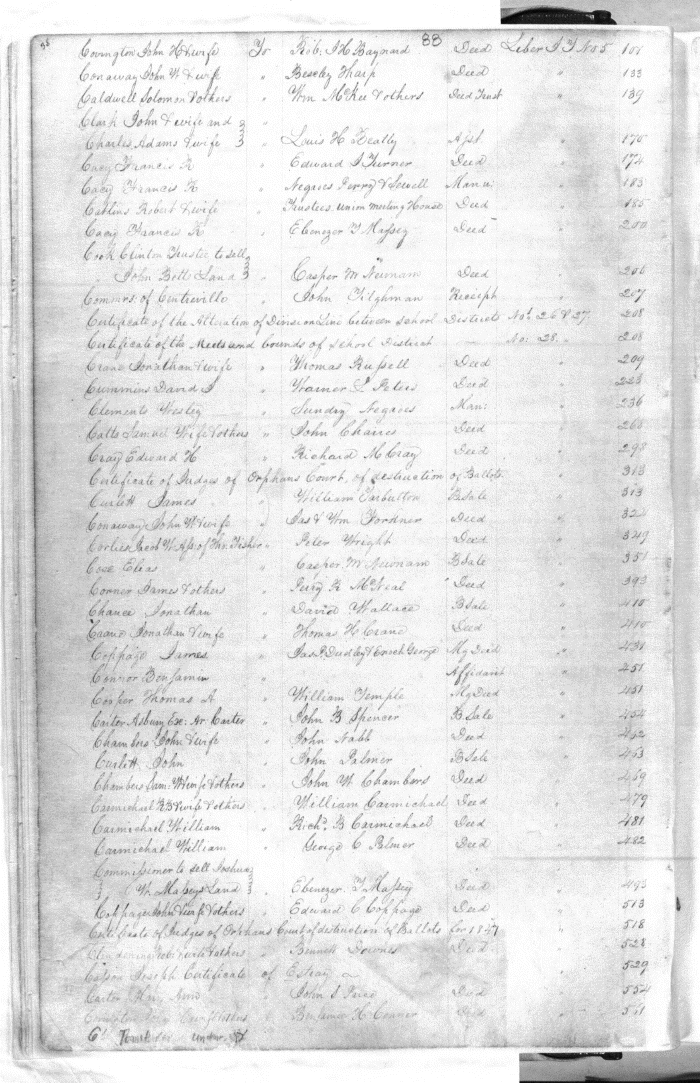 88
Covington John H & wife To Rob. I H Baynard Deed Liber J T No 5 101
Conaway John W & wife " Beseley Tharp Deed " 133
Caldwell Solomon & others " Wm McKee & others Deed Trust " 139
Clark John & wife and
Charles Adams & wife " Louis H. Beatty Asst " 170
Cacy Francis R " Edward S Turner Deed " 174
Cacy Francis R " Negroes Perry & Sewell Manu: " 183
Catlins Robert & wife " Trustees union meeting House Deed " 185
Cacy Francis R " Ebenezer T Massey Deed " 200
Cook Clinton Trustee to sell
John Botts Land " Casper M Newnam Deed " 206
Commrs. of Centreville " John Tilghman Receipt " 207
Certificate of the Alteration of Division Line between school Districts Nos. 26 & 27. 208
Certificate of the Meets and bounds of school District No: 28. " 208
Crane Jonathan & wife " Thomas Russell Deed " 209
Cummins David J " Warner L Peters Deed " 223
Clements Wesley " Sundry Negroes Man: " 236
Catts Samuel Wife & others " John Chaires Deed " 260
Cray Edward H " Richard M Cray Deed " 298
Certificate of Judges of Orphans Court, of destruction of Ballots " 313
Curlett James " William Tarbutton B Sale " 313
Conaway John W & wife " Jas & Wm Fordner Deed " 324
Corlies Jacob W. Ass of Thr. Fisher " Peter Wright Deed " 349
Coxe Eleas " Casper M Newnam B Sale " 351
Conner James & others " Perry R McNeal Deed " 393
Chance Jonathan " David Wallace B Sale " 410
Crane Jonathan & wife " Thomas H Crane Deed " 410
Coppage James " Jas P. Dudley & Enoch George Mg Deed " 431
Connor Benjamin " Affidavit " 451
Cooper Thomas A " William Temple Mg Deed " 451
Carter Asbury Exr. Ar. Carter " John B Spencer B Sale " 454
Chambers John & wife " John Nabb Deed " 462
Curlett John " John Palmer B Sale " 463
Chambers Sam: W wife & others " John W Chambers Deed " 469
Carmichael R B & wife & others " William Carmichael Deed " 479
Carmichael William " Richd. B Carmichael Deed " 481
Carmichael William " George C Palmer Deed " 482
Commissioner to sell Joshua
W. Masseys Land " Ebenezer T Massey Deed " 493
Coppage John & wife & others " Edward C Coppage Deed " 513
Certificate of Judges of Orphans Court of destruction of Ballots for 1847 " 518
Clendening Rob: wife & others " Bennett Downes Deed " 528
Joseph Certificate of Estray " 529
Carter " John S Deed " 554
& others " Benjamin H. Conner Deed " 561